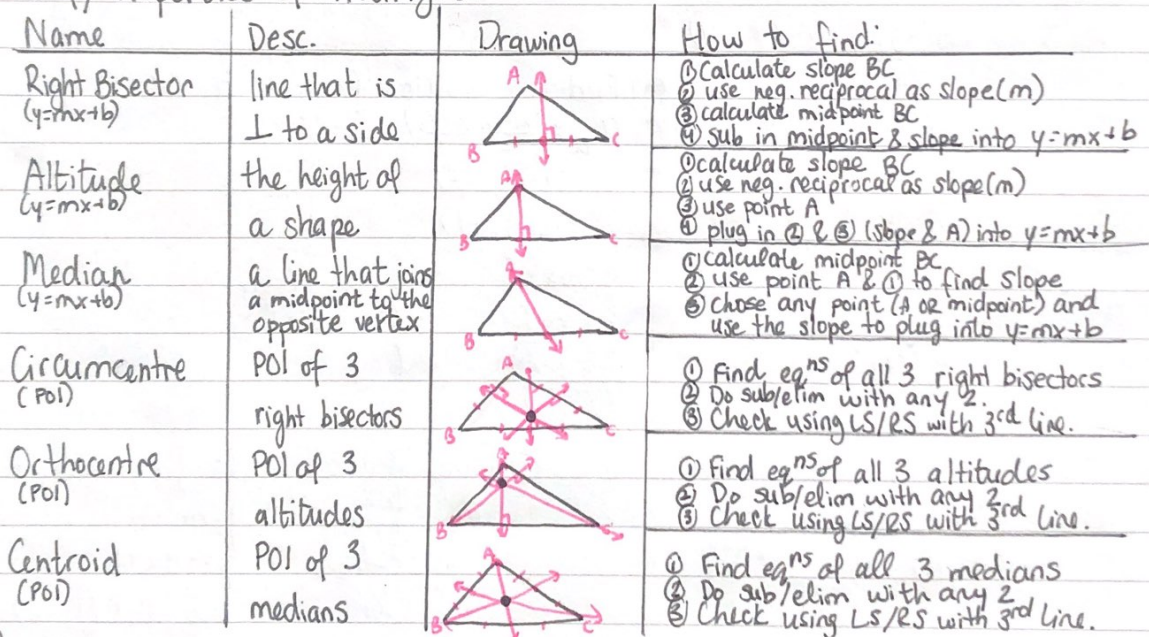 Name Desc. Drawing How to find:
Right Bisector
(y=mx+b)
line that is
⊥ to a side
A
B C
① Calculate slope BC
② use neg. reciprocal as slope(m)
③ calculate midpoint BC
④ sub in midpoint & slope into y=mx+b
Altitude
(y=mx+b)
the height of
a shape
A
B C
① calculate slope BC
② use neg. reciprocal as slope(m)
③ use point A
④ plug in ② & ③ (slope & A) into y=mx+b
Median
(y=mx+b)
a line that joins
a midpoint to the
opposite vertex
A
B C
① calculate midpoint BC
② use point A & ① to find slope
③ chose any point (A OR midpoint) and
use the slope to plug into y=mx+b
Circumcentre
(POI)
POI of 3
right bisectors
A
B C
① Find eqⁿˢ of all 3 right bisectors
② Do sub/elim with any 2.
③ Check using LS/RS with 3rd line.
Orthocentre
(POI)
POI of 3
altitudes
B C
① Find eqⁿˢ of all 3 altitudes
② Do sub/elim with any 2
③ Check using LS/RS with 3rd line.
Centroid
(POI)
POI of 3
medians
A
B C
① Find eqⁿˢ of all 3 medians
② Do sub/elim with any 2
③ Check using LS/RS with 3rd line.